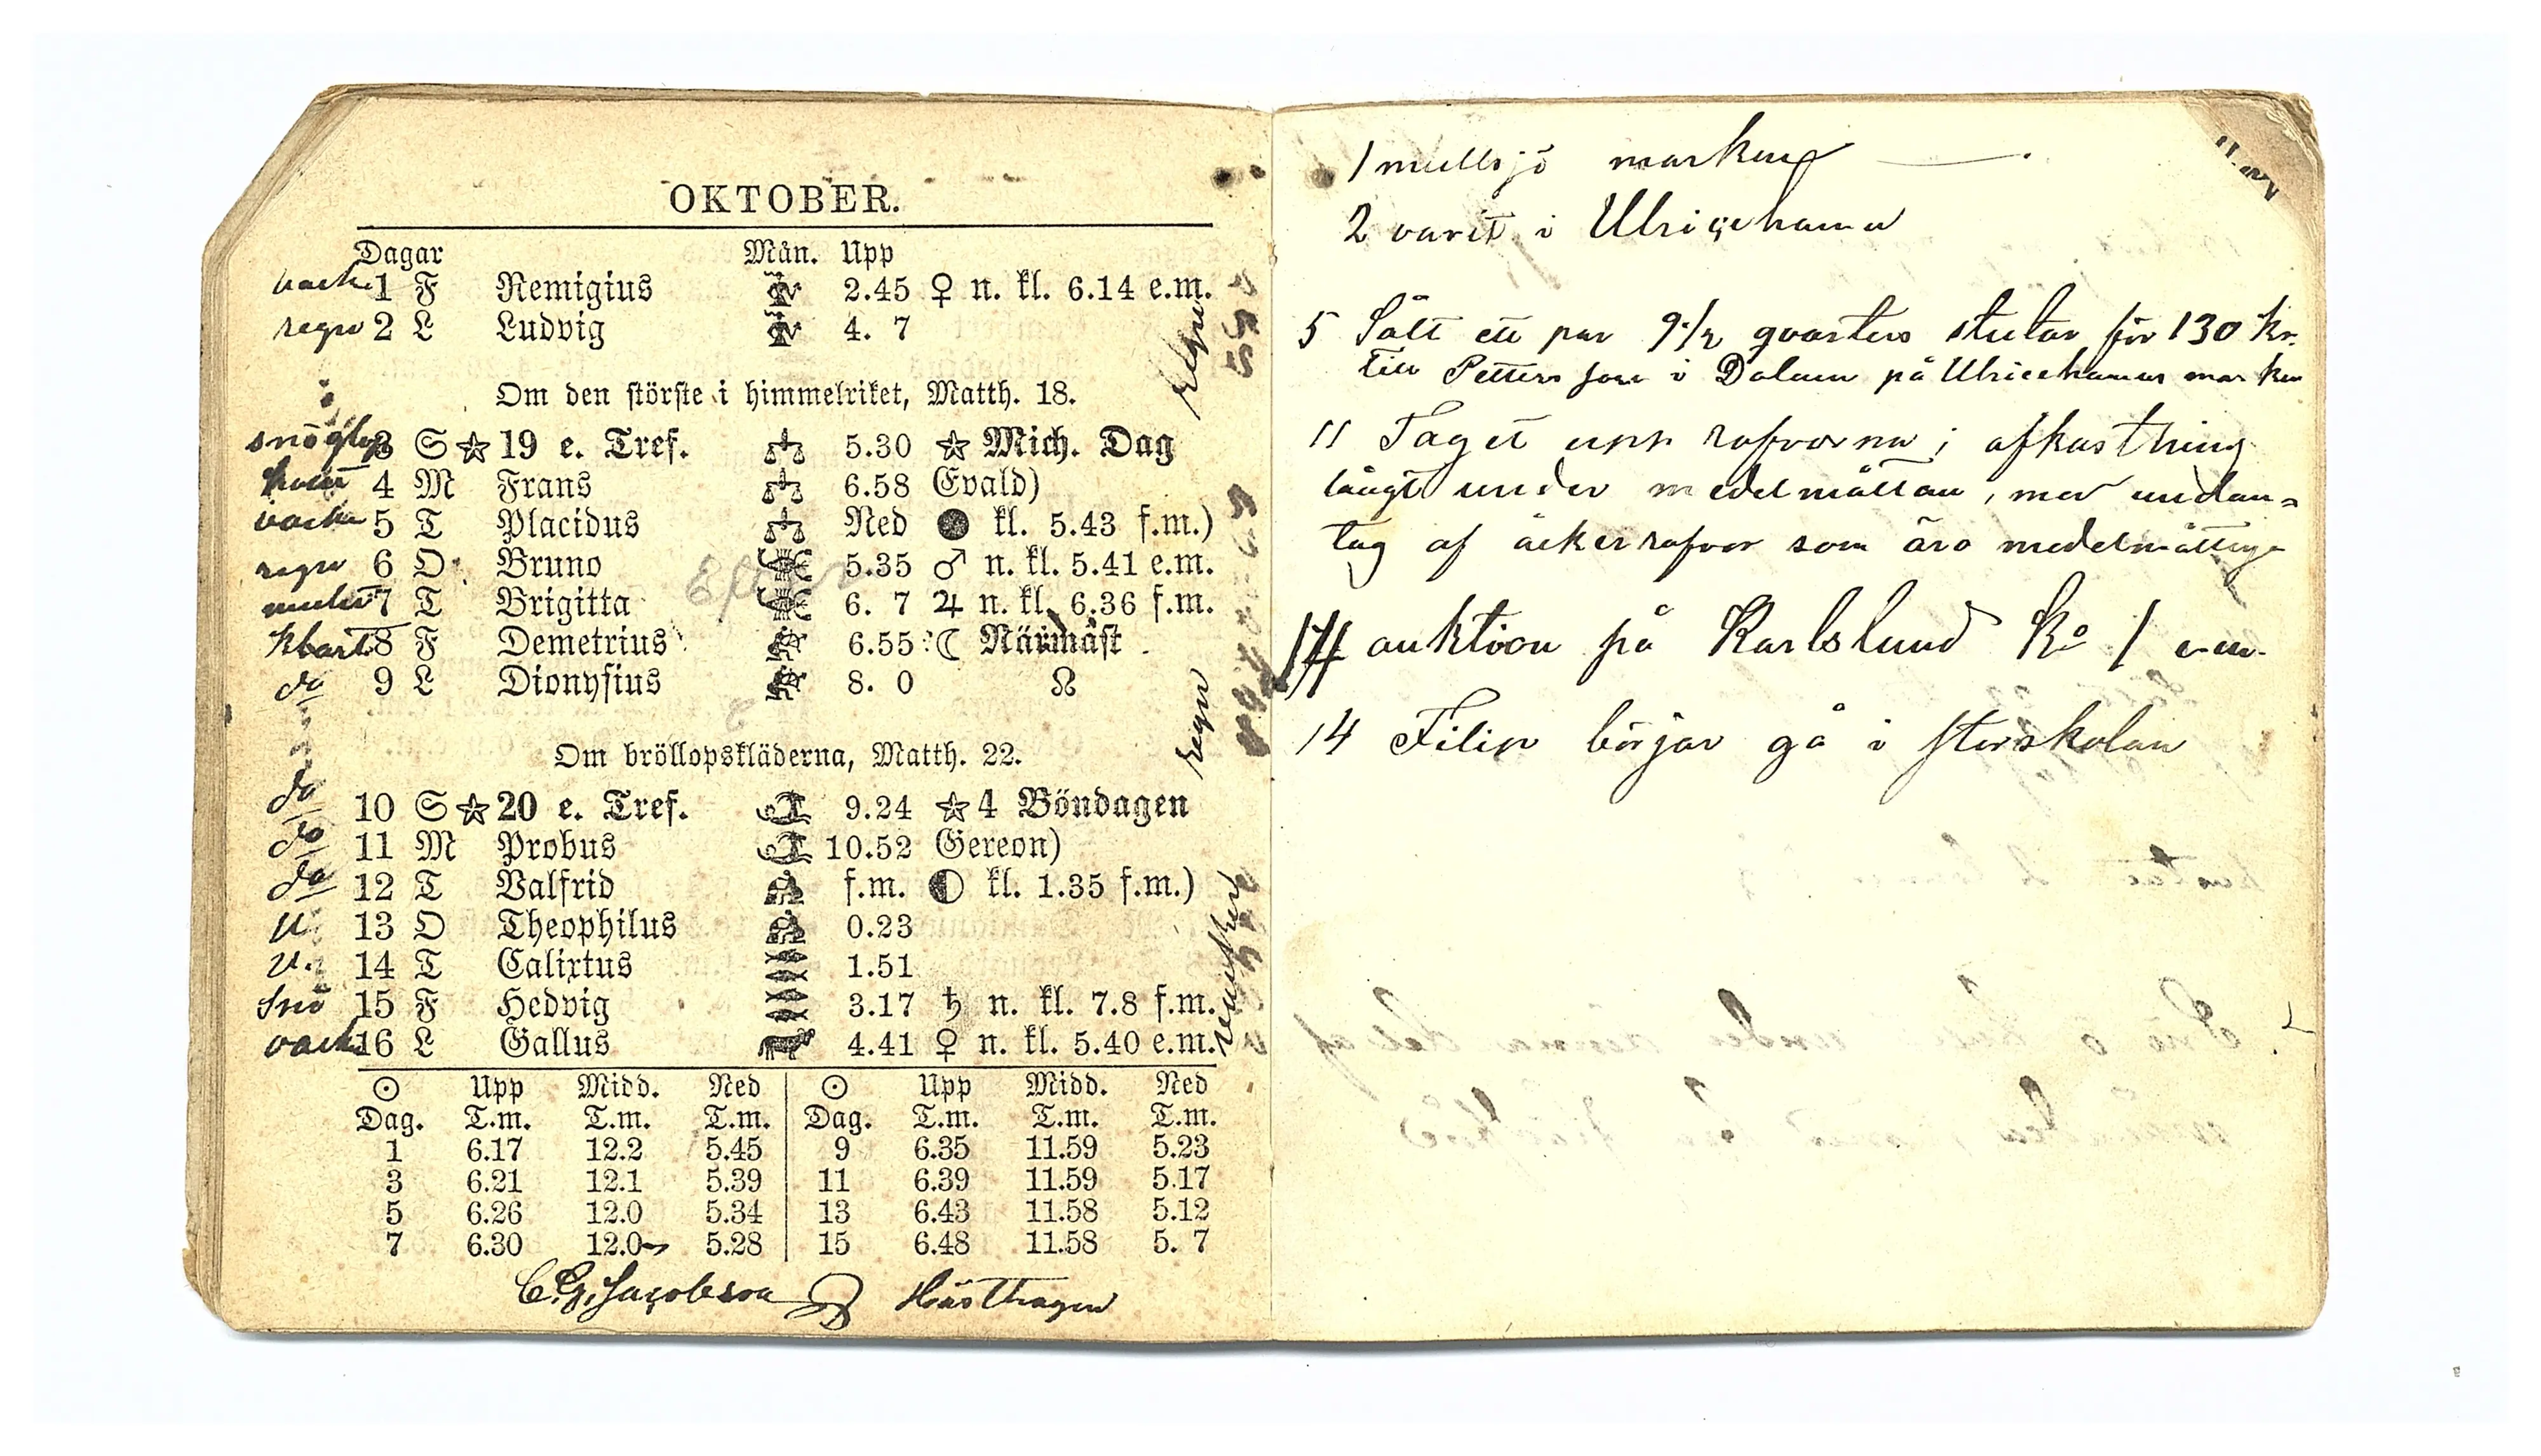 OKTOBER.
Dagar Mån. Upp
vack. 1 F Remigius 2.45 ♀ n. kl. 6.14 e.m.
regn 2 L Ludvig 4. 7
regn
Om den störste i himmelriket, Matth. 18.
3 S ☆ 19 e. Tref. 5.30 ☆ Mich. Dag
4 M Frans 6.58 Evald)
vacker 5 T Placidus Ned ● kl. 5.43 f.m.)
regn 6 O Bruno 5.35 ♂ n. kl. 5.41 e.m.
mulet 7 T Brigitta 6. 7 ♃ n. kl. 6.36 f.m.
klart 8 F Demetrius 6.55 ☾ Närmast
do 9 L Dionysius 8. 0 ☊
regn
Om bröllopskläderna, Matth. 22.
do 10 S ☆ 20 e. Tref. 9.24 ☆ 4 Böndagen
do 11 M Probus 10.52 Gereon)
do 12 T Valfrid f.m. ◐ kl. 1.35 f.m.)
v. 13 O Theophilus 0.23
v. 14 T Calixtus 1.51
snö 15 F Hedvig 3.17 ♄ n. kl. 7.8 f.m.
vack. 16 L Gallus 4.41 ♀ n. kl. 5.40 e.m.
☉ Upp Midd. Ned ☉ Upp Midd. Ned
Dag. T.m. T.m. T.m. Dag. T.m. T.m. T.m.
1 6.17 12.2 5.45 9 6.35 11.59 5.23
3 6.21 12.1 5.39 11 6.39 11.59 5.17
5 6.26 12.0 5.34 13 6.43 11.58 5.12
7 6.30 12.0 5.28 15 6.48 11.58 5. 7
C.G. Jacobson Hästhagen
1 mullsjö marken
2 varit i Ulricehamn
5 Sålt ett par 9 1/2 qvarters stutar för 130 kr.
till Petterson i Dalum på Ulricehamns marken
11 Taget upp rofvorna; afkastning
långt under medelmåttan, med undan=
tag af åkerrofvor som äro medelmåttiga
14 auktion på Karlslund Kl 1 e.m.
14 Filip börjar gå i storskolan